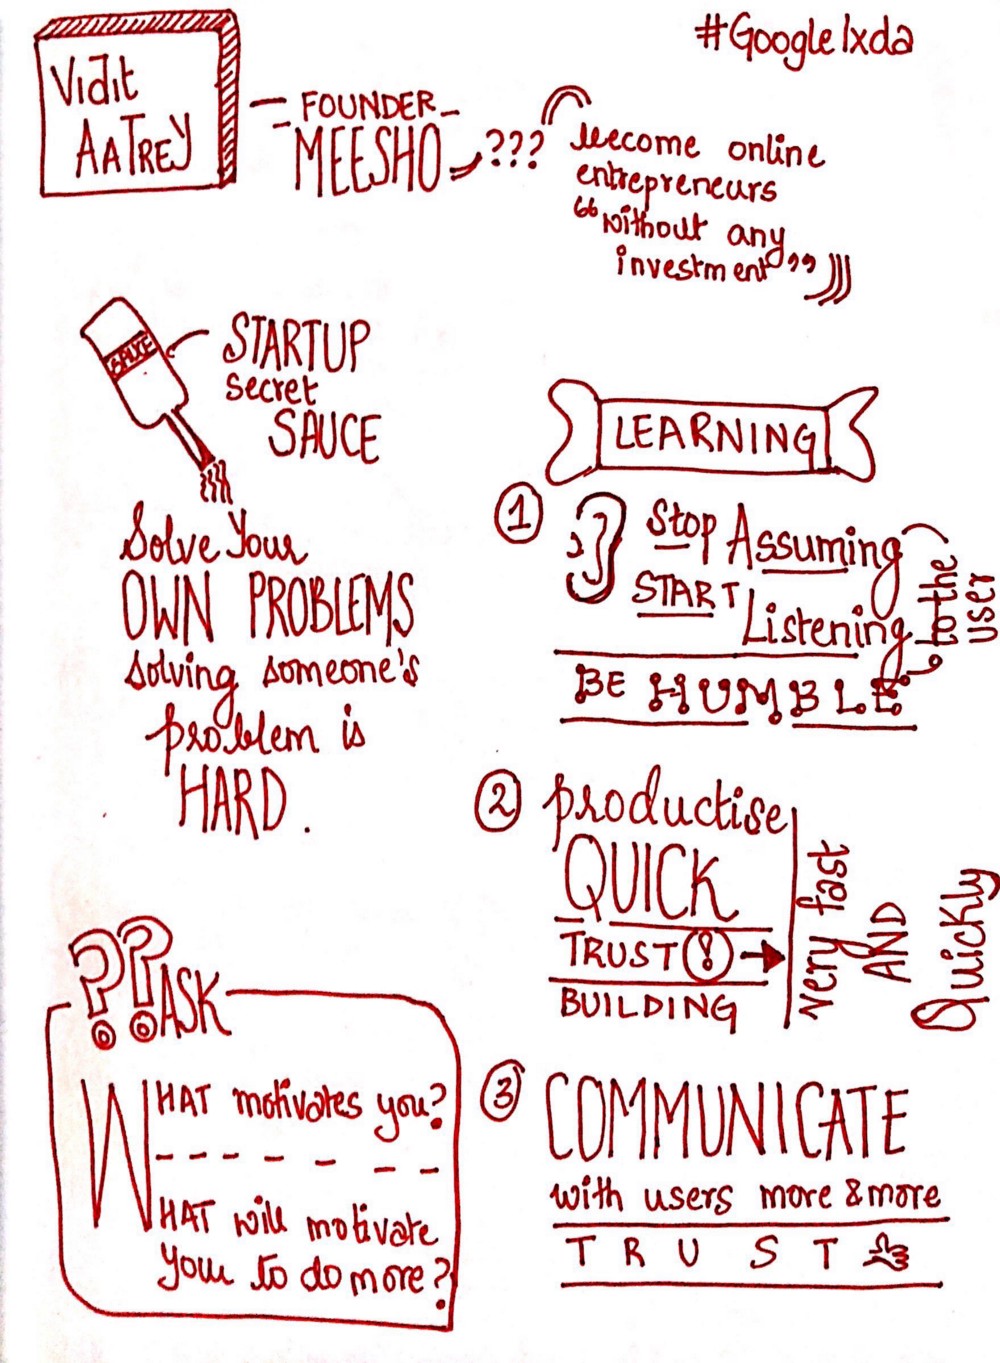 #GoogleIxda
Vidit
AATREY
FOUNDER
MEESHO ???
become online
entrepreneurs
"without any
investment"
SAUCE
STARTUP
secret
SAUCE
Solve Your
OWN PROBLEMS
solving someone's
problem is
HARD.
LEARNING
1 Stop Assuming
START
Listening
to the
USER
BE HUMBLE
2 productise
QUICK
TRUST !
BUILDING
very fast
AND
Quickly
3 COMMUNICATE
with users more & more
TRUST
?? ASK
WHAT motivates you?
WHAT will motivate
you to do more?